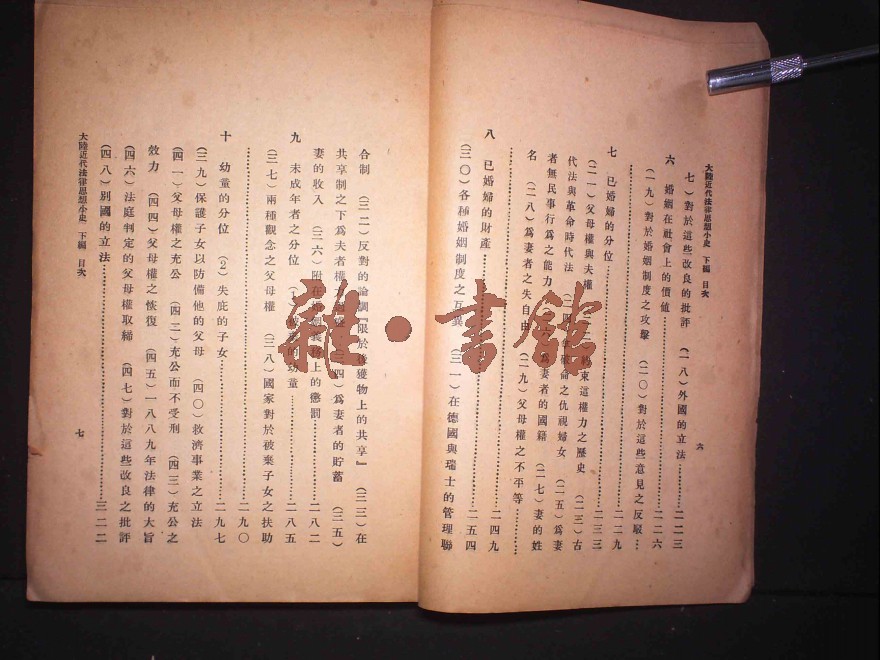 大陸近代法律思想小史 下編 目次
六
七)對於這些改良的批評 (一八)外國的立法…………二二三
六 婚姻在社會上的價值…………二二六
(一九)對於婚姻制度之攻擊 (二〇)對於這些意見之反駁…二二九
七 已婚婦的分位…………二三三
(二一)父母權與夫權 約束這權力之歷史 (二三)古
代法與革命時代法 破侖之仇視婦女 (二五)爲妻
者無民事行爲之能力 爲妻者的國籍 (二七)妻的姓
名 (二八)爲妻者之失自由 (二九)父母權之不平等…
…………二四九
八 已婚婦的財產…………二五四
(三〇)各種婚姻制度之互異 (三一)在德國與瑞士的管理聯
合制 (三二)反對的論調『限於後獲物上的共享』 (三三)在
共享制之下爲夫者權 (三四)爲妻者的貯蓄 (三五)
妻的收入 (三六)附在 上的懲罰…………二八二
九 未成年者之分位 的幼童…………二八五
(三七)兩種觀念之父母權 (三八)國家對於被棄子女之扶助
…………二九〇
十 幼童的分位 (2)失庇的子女…………二九七
(三九)保護子女以防備他的父母 (四〇)救濟事業之立法
(四一)父母權之充公 (四二)充公而不受刑 (四三)充公之
效力 (四四)父母權之恢復 (四五)一八八九年法律的大旨
(四六)法庭判定的父母權取締 (四七)對於這些改良之批評
(四八)別國的立法…………三二二
大陸近代法律思想小史 下編 目次
七
雜·書館